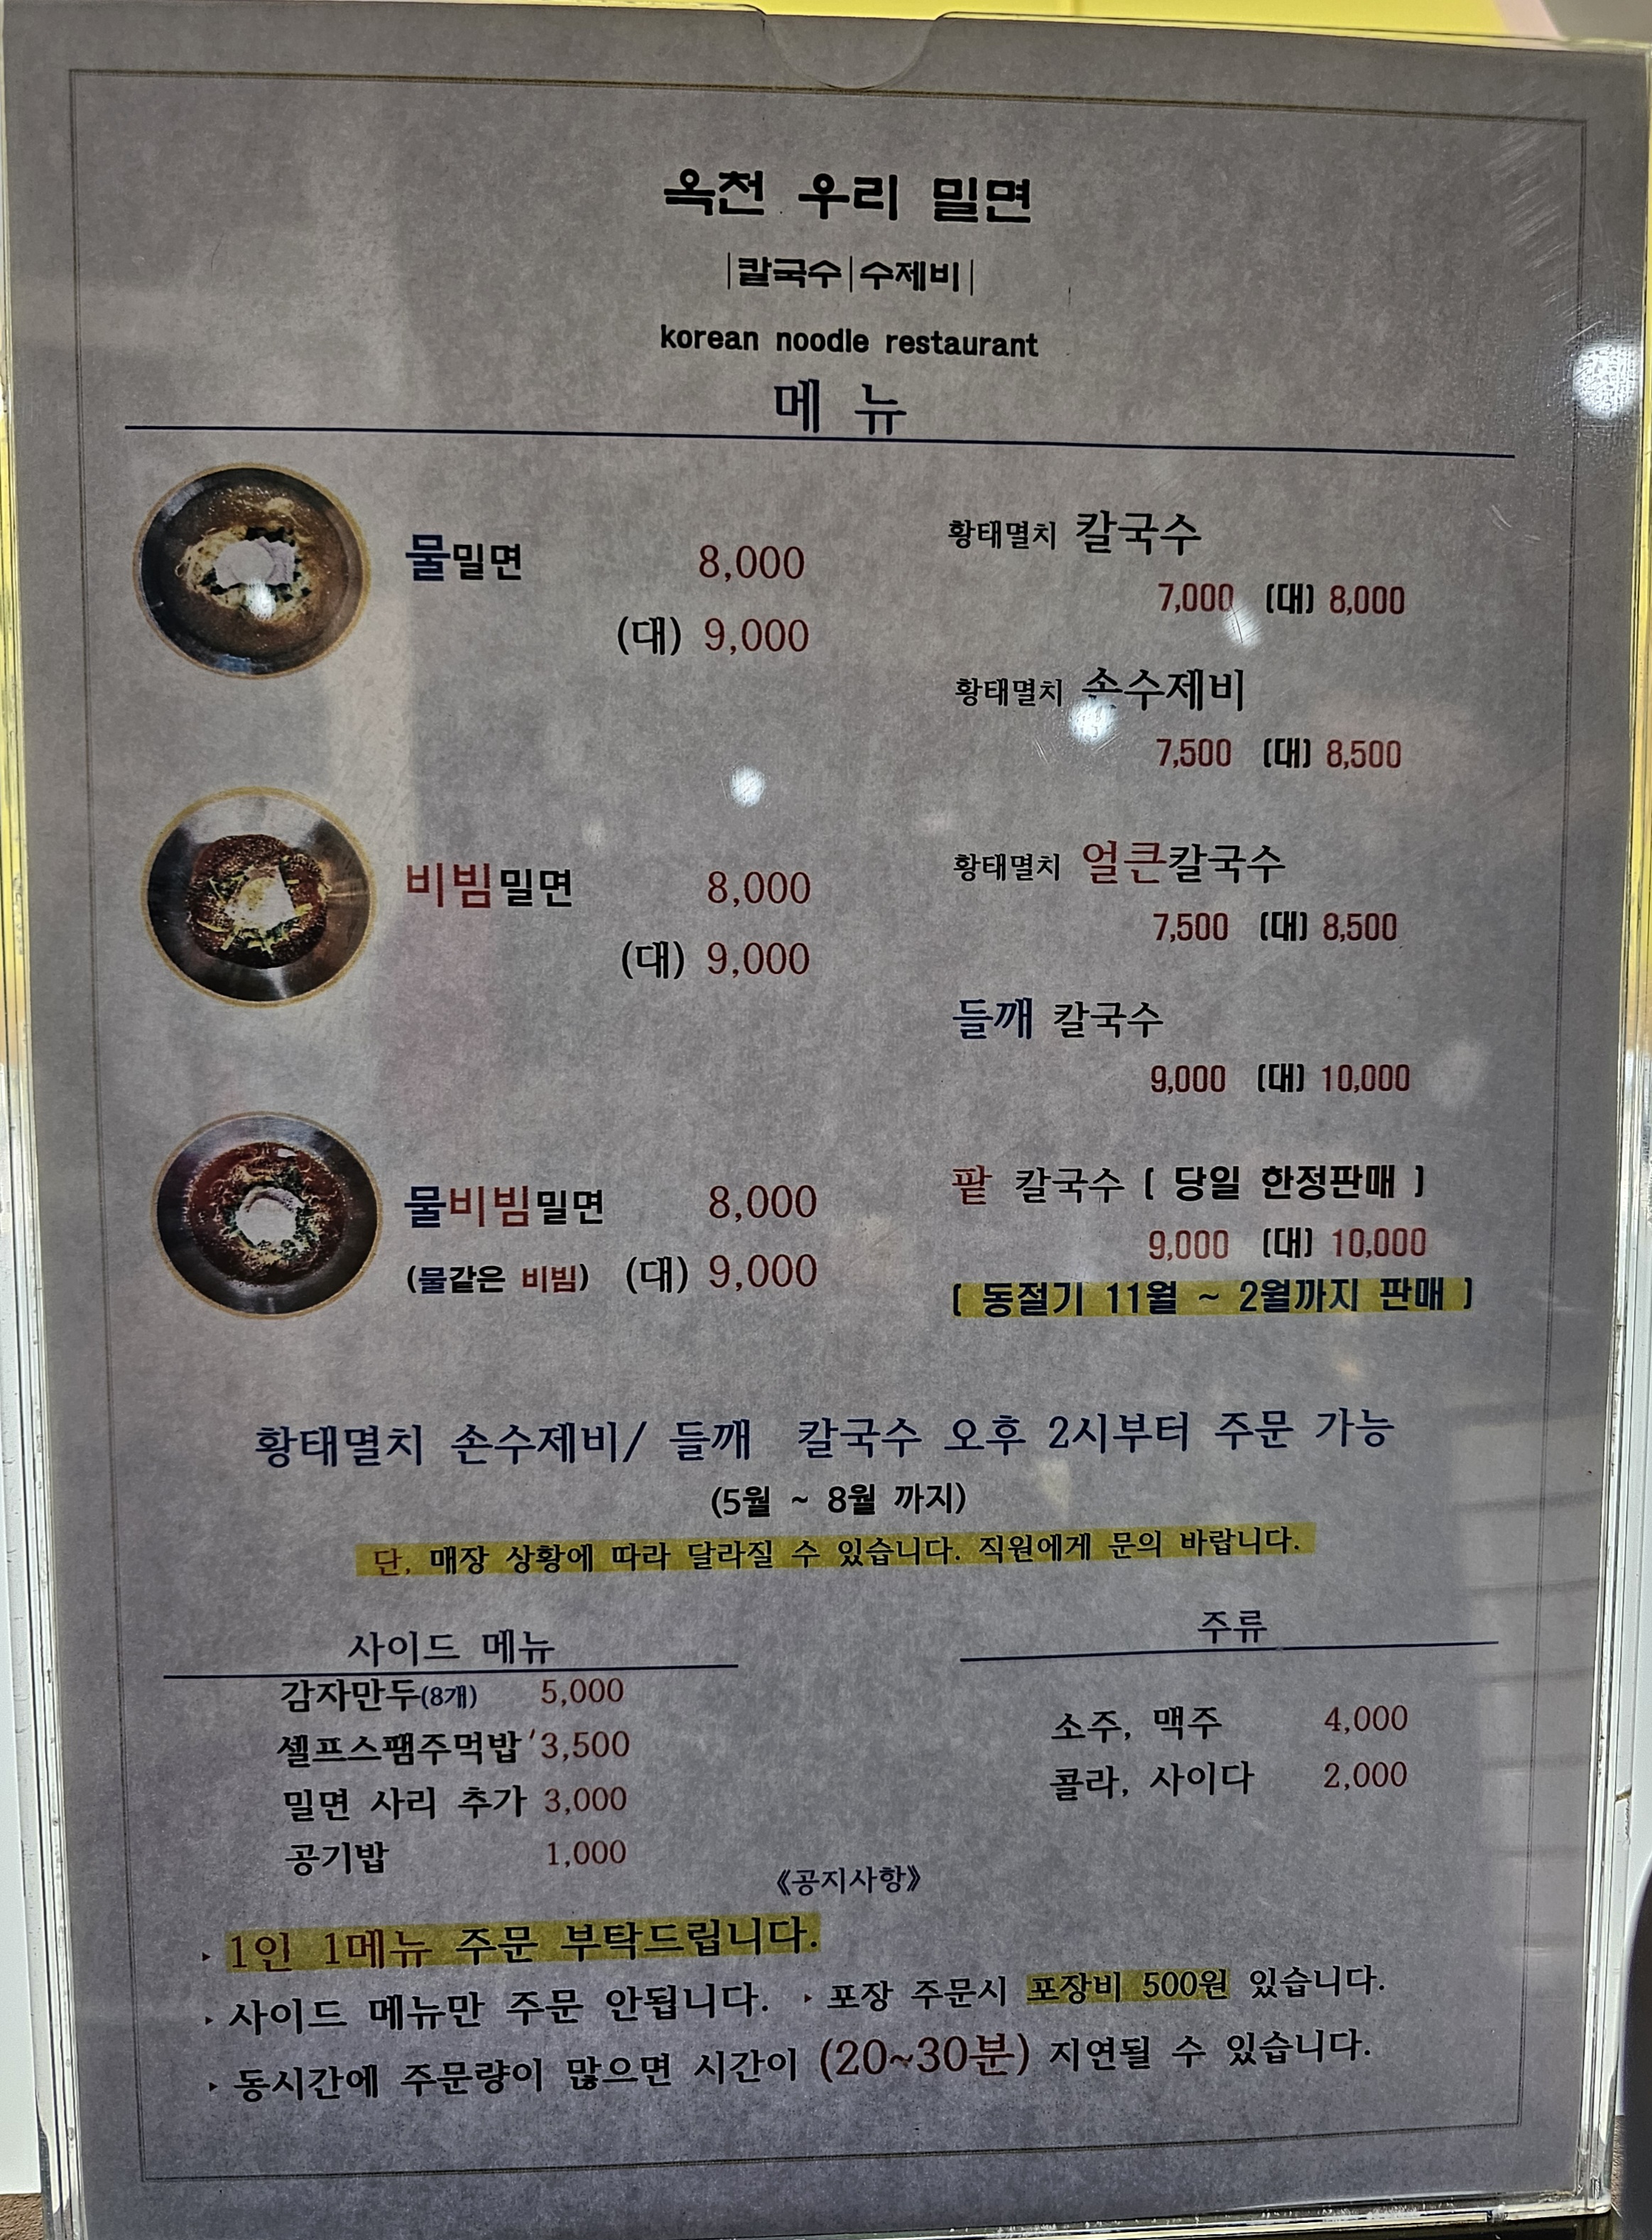 옥천 우리 밀면
|칼국수|수제비|
korean noodle restaurant
메 뉴
물밀면 8,000
(대) 9,000
비빔밀면 8,000
(대) 9,000
물비빔밀면 8,000
(물같은 비빔) (대) 9,000
황태멸치 칼국수
7,000 (대) 8,000
황태멸치 손수제비
7,500 (대) 8,500
황태멸치 얼큰칼국수
7,500 (대) 8,500
들깨 칼국수
9,000 (대) 10,000
팥 칼국수 ( 당일 한정판매 )
9,000 (대) 10,000
( 동절기 11월 ~ 2월까지 판매 )
황태멸치 손수제비/ 들깨 칼국수 오후 2시부터 주문 가능
(5월 ~ 8월 까지)
단, 매장 상황에 따라 달라질 수 있습니다. 직원에게 문의 바랍니다.
사이드 메뉴
감자만두(8개) 5,000
셀프스팸주먹밥 '3,500
밀면 사리 추가 3,000
공기밥 1,000
주류
소주, 맥주 4,000
콜라, 사이다 2,000
《공지사항》
▸ 1인 1메뉴 주문 부탁드립니다.
▸ 사이드 메뉴만 주문 안됩니다. ▸ 포장 주문시 포장비 500원 있습니다.
▸ 동시간에 주문량이 많으면 시간이 (20~30분) 지연될 수 있습니다.